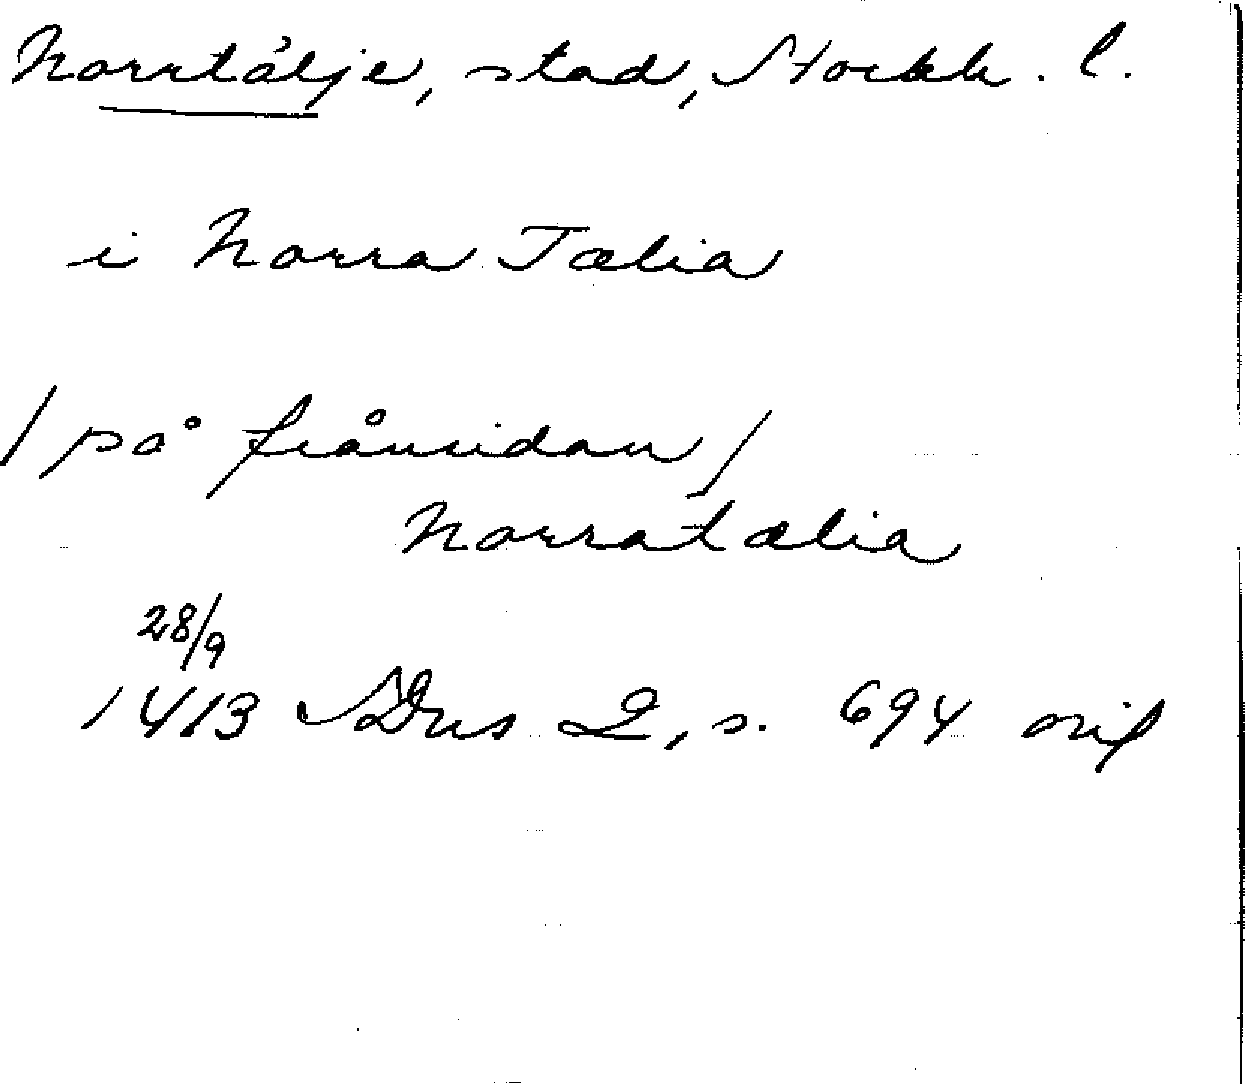 Norrtälje, stad, Stockh. l.
i Norra Tælia
/på frånsidan/
Norratælia
28/9
1413 SDns 2, s. 694 orig